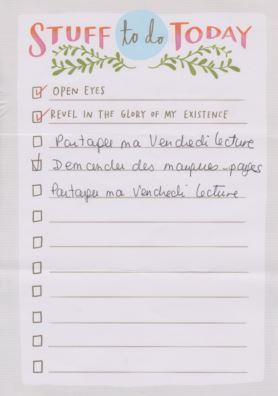 STUFF to do TODAY
OPEN EYES
REVEL IN THE GLORY OF MY EXISTENCE
Partager ma Vendredi lecture
Demander des marques-pages
Partager ma Vendredi lecture